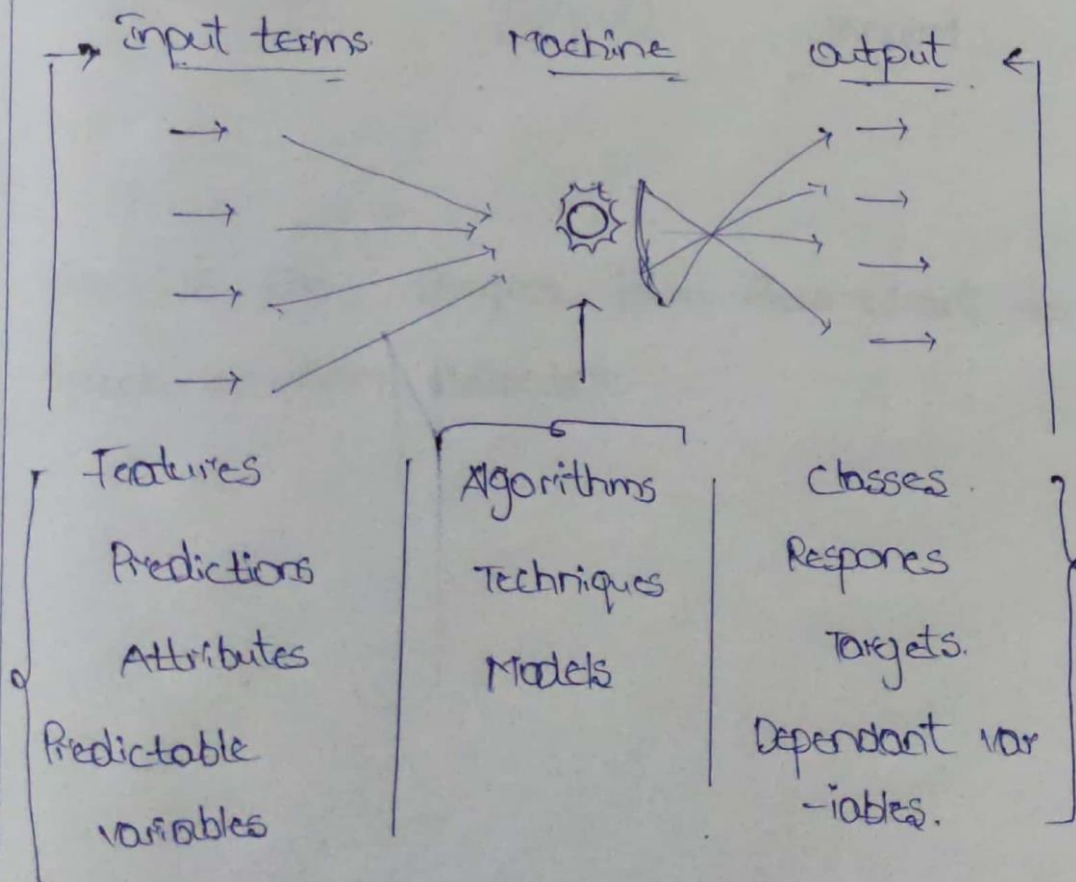 Input terms
Machine
Output
Features
Predictions
Attributes
Predictable
variables
Algorithms
Techniques
Models
Classes.
Respones
Targets.
Dependant var
-iables.